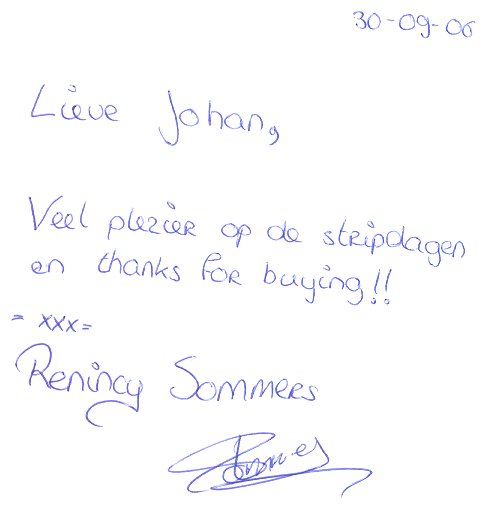 30-09-06
Lieve Johan,
Veel plezier op de stripdagen
en thanks for buying!!
= xxx =
Renincy Sommers